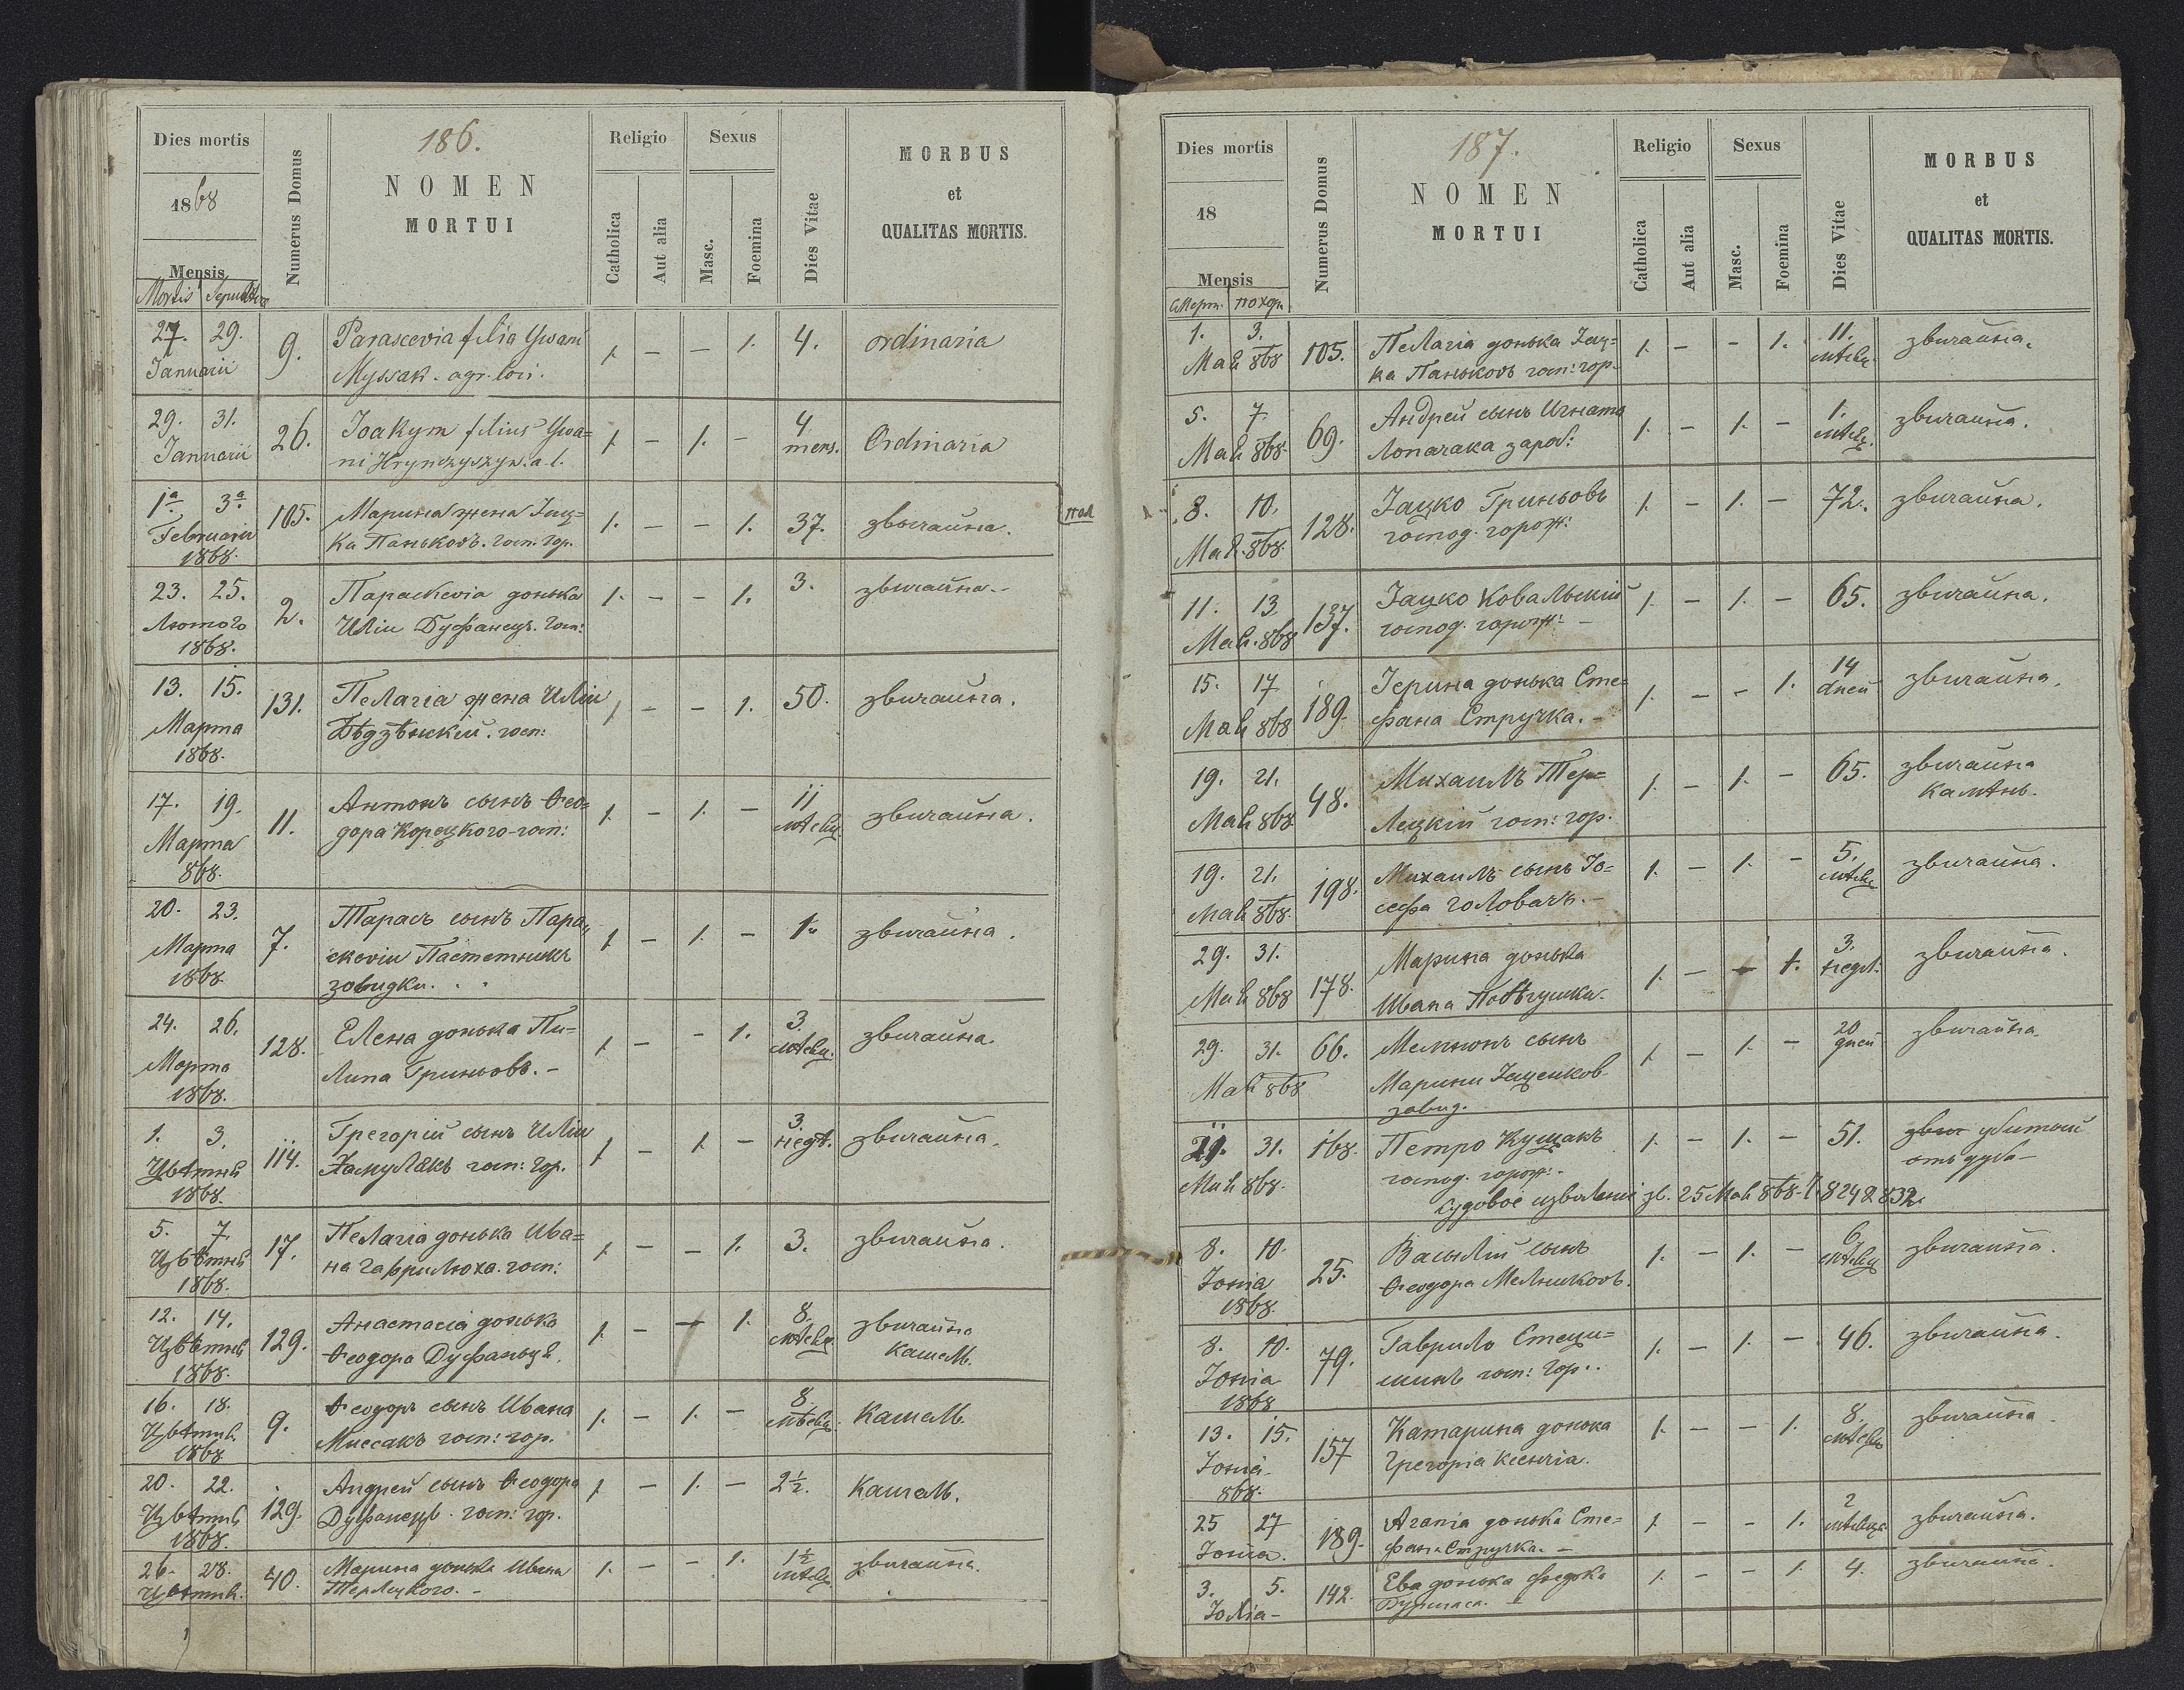 186.
Dies mortis
1868
Mensis
Mortis Sepulturae
Numerus Domus
NOMEN
MORTUI
Religio
Catholica
Aut alia
Sexus
Masc.
Foemina
Dies Vitae
MORBUS
et
QUALITAS MORTIS.
27. 29. 9. Parascevia filia Ywani 1. — — 1. 4. ordinaria
Januarii Myssak. agr. loci.
29. 31. 26. Joakym filius Ywa= 1. — 1. — 4 Ordinaria
Januarii ni Hrynczyszyn. a. l. mens.
1ª 3ª 105. Марина жена Яц= 1. — — 1. 37. звычайна.
Februarii ка Паньковъ. госп. гор.
1868.
23. 25. 2. Параскевіа донька 1. — — 1. 3. звычайна.-
Лютого Иліи Дуфанецъ. госп:
1868.
13. 15. 131. Пелагіа жена Иліи 1. — — 1. 50. звычайна.
Марта госп:
1868.
17. 19. 11. Антонъ сынъ Ѳео= 1. — 1. — 11 звычайна.
Марта дора Корецкого госп: мѣсяц
868.
20. 23. 7. Тарасъ сынъ Пара= 1. — 1. — 1. звычайна.
Марта скевіи
1868. завидки.
24. 26. 128. Елена донька Пи= 1. — — 1. 3. звычайна.
Марта липа Гриньовъ. - мѣсяц.
1868.
1. 3. 114. Грегорій сынъ Иліи 1. — 1. — 3. звычайна.
Цвѣтня госп: гор. недѣ.
1868.
5. 7. 17. Пелагіа донька Ива= 1. — — 1. 3. звычайна.
Цвѣтня на Гаврилюха. госп:
1868.
12. 14. 129. Анастасіа донька 1. — — 1. 8. звычайна
Цвѣтня Ѳеодора Дуфаньця. мѣсяц. кашель.
1868.
16. 18. 9. Ѳеодоръ сынъ Ивана 1. — 1. — 8. кашель.
Цвѣтня Миссакъ госп: гор. мѣсяц.
1868
20. 22. 129. Андрей сынъ Ѳеодора 1. — 1. — 2½. кашель.
Цвѣтня Дуфанецъ. госп: гор.
1868.
26. 28. 40. Марина донька Ивана 1. — — 1. 1½ звычайна.
Цвѣтня. Терлецкого. - мѣсяц.
187.
Dies mortis
18
Mensis
Смерт. похор.
Numerus Domus
NOMEN
MORTUI
Religio
Catholica
Aut alia
Sexus
Masc.
Foemina
Dies Vitae
MORBUS
et
QUALITAS MORTIS.
1. 3. 105. Пелагіа донька Яц= 1. — — 1. 11. звычайна.
Мая 868 ка Паньковъ госп: гор. мѣсяц.
5. 7. 69. Андрей сынъ Игната 1. — 1. — 1. звычайна.
Мая 868. Лопачака зароб: мѣсяц.
8. 10. 128. Яцко Гриньовъ 1. — 1. — 72. звычайна.
Мая. 868. господ. горож:
11. 13 137. Яцко Ковальскій 1. — 1. — 65. звычайна.
Мая. 868 господ. горож: —
15. 17 189. Ірина донька Сте= 1. — — 1. 14 звычайна.
Мая 868 фана Стручка. — дней
19. 21. 48. Михаилъ Тер= 1. — 1. — 65. звычайна
Мая 868 лецкій госп: гор.
19. 21. 198. Михаилъ сынъ Іо= 1. — 1. — 5. звычайна.
Мая 868. сифа Головачъ. — мѣсяц
29. 31. 178. Марина донька 1. — — 1. 3. звычайна.
Мая 868 Ивана недѣл.
29. 31. 66. сынъ 1. — 1. — 20 звычайна.
Мая 868 Марины дней
завид.
31. 168. Петро Кущакъ 1. — 1. — 51. убитый
Мая 868. господ. горож: — отъ дуба —
Судовое 25 Мая 868
8. 10. 25. Василій сынъ 1. — 1. — 6 звычайна.
Юніа Ѳеодора Мельниковъ. мѣсяц
1868.
8. 10. 79. Гаврило Стеци= 1. — 1. — 46. звычайна.
Юніа шинъ госп: гор..
1868
13. 15. 157 Катарина донька 1. — — 1. 8. звычайна.
Юніа. Грегоріа мѣсяц
868.
25 27 189. Агапіа донька Сте= 1. — — 1. 2 звычайна.
Юніа. фана Стручка. — мѣсяца
3. 5. 142. Ева донька Федька 1. — — 1. 4. звычайна.
Юліа —